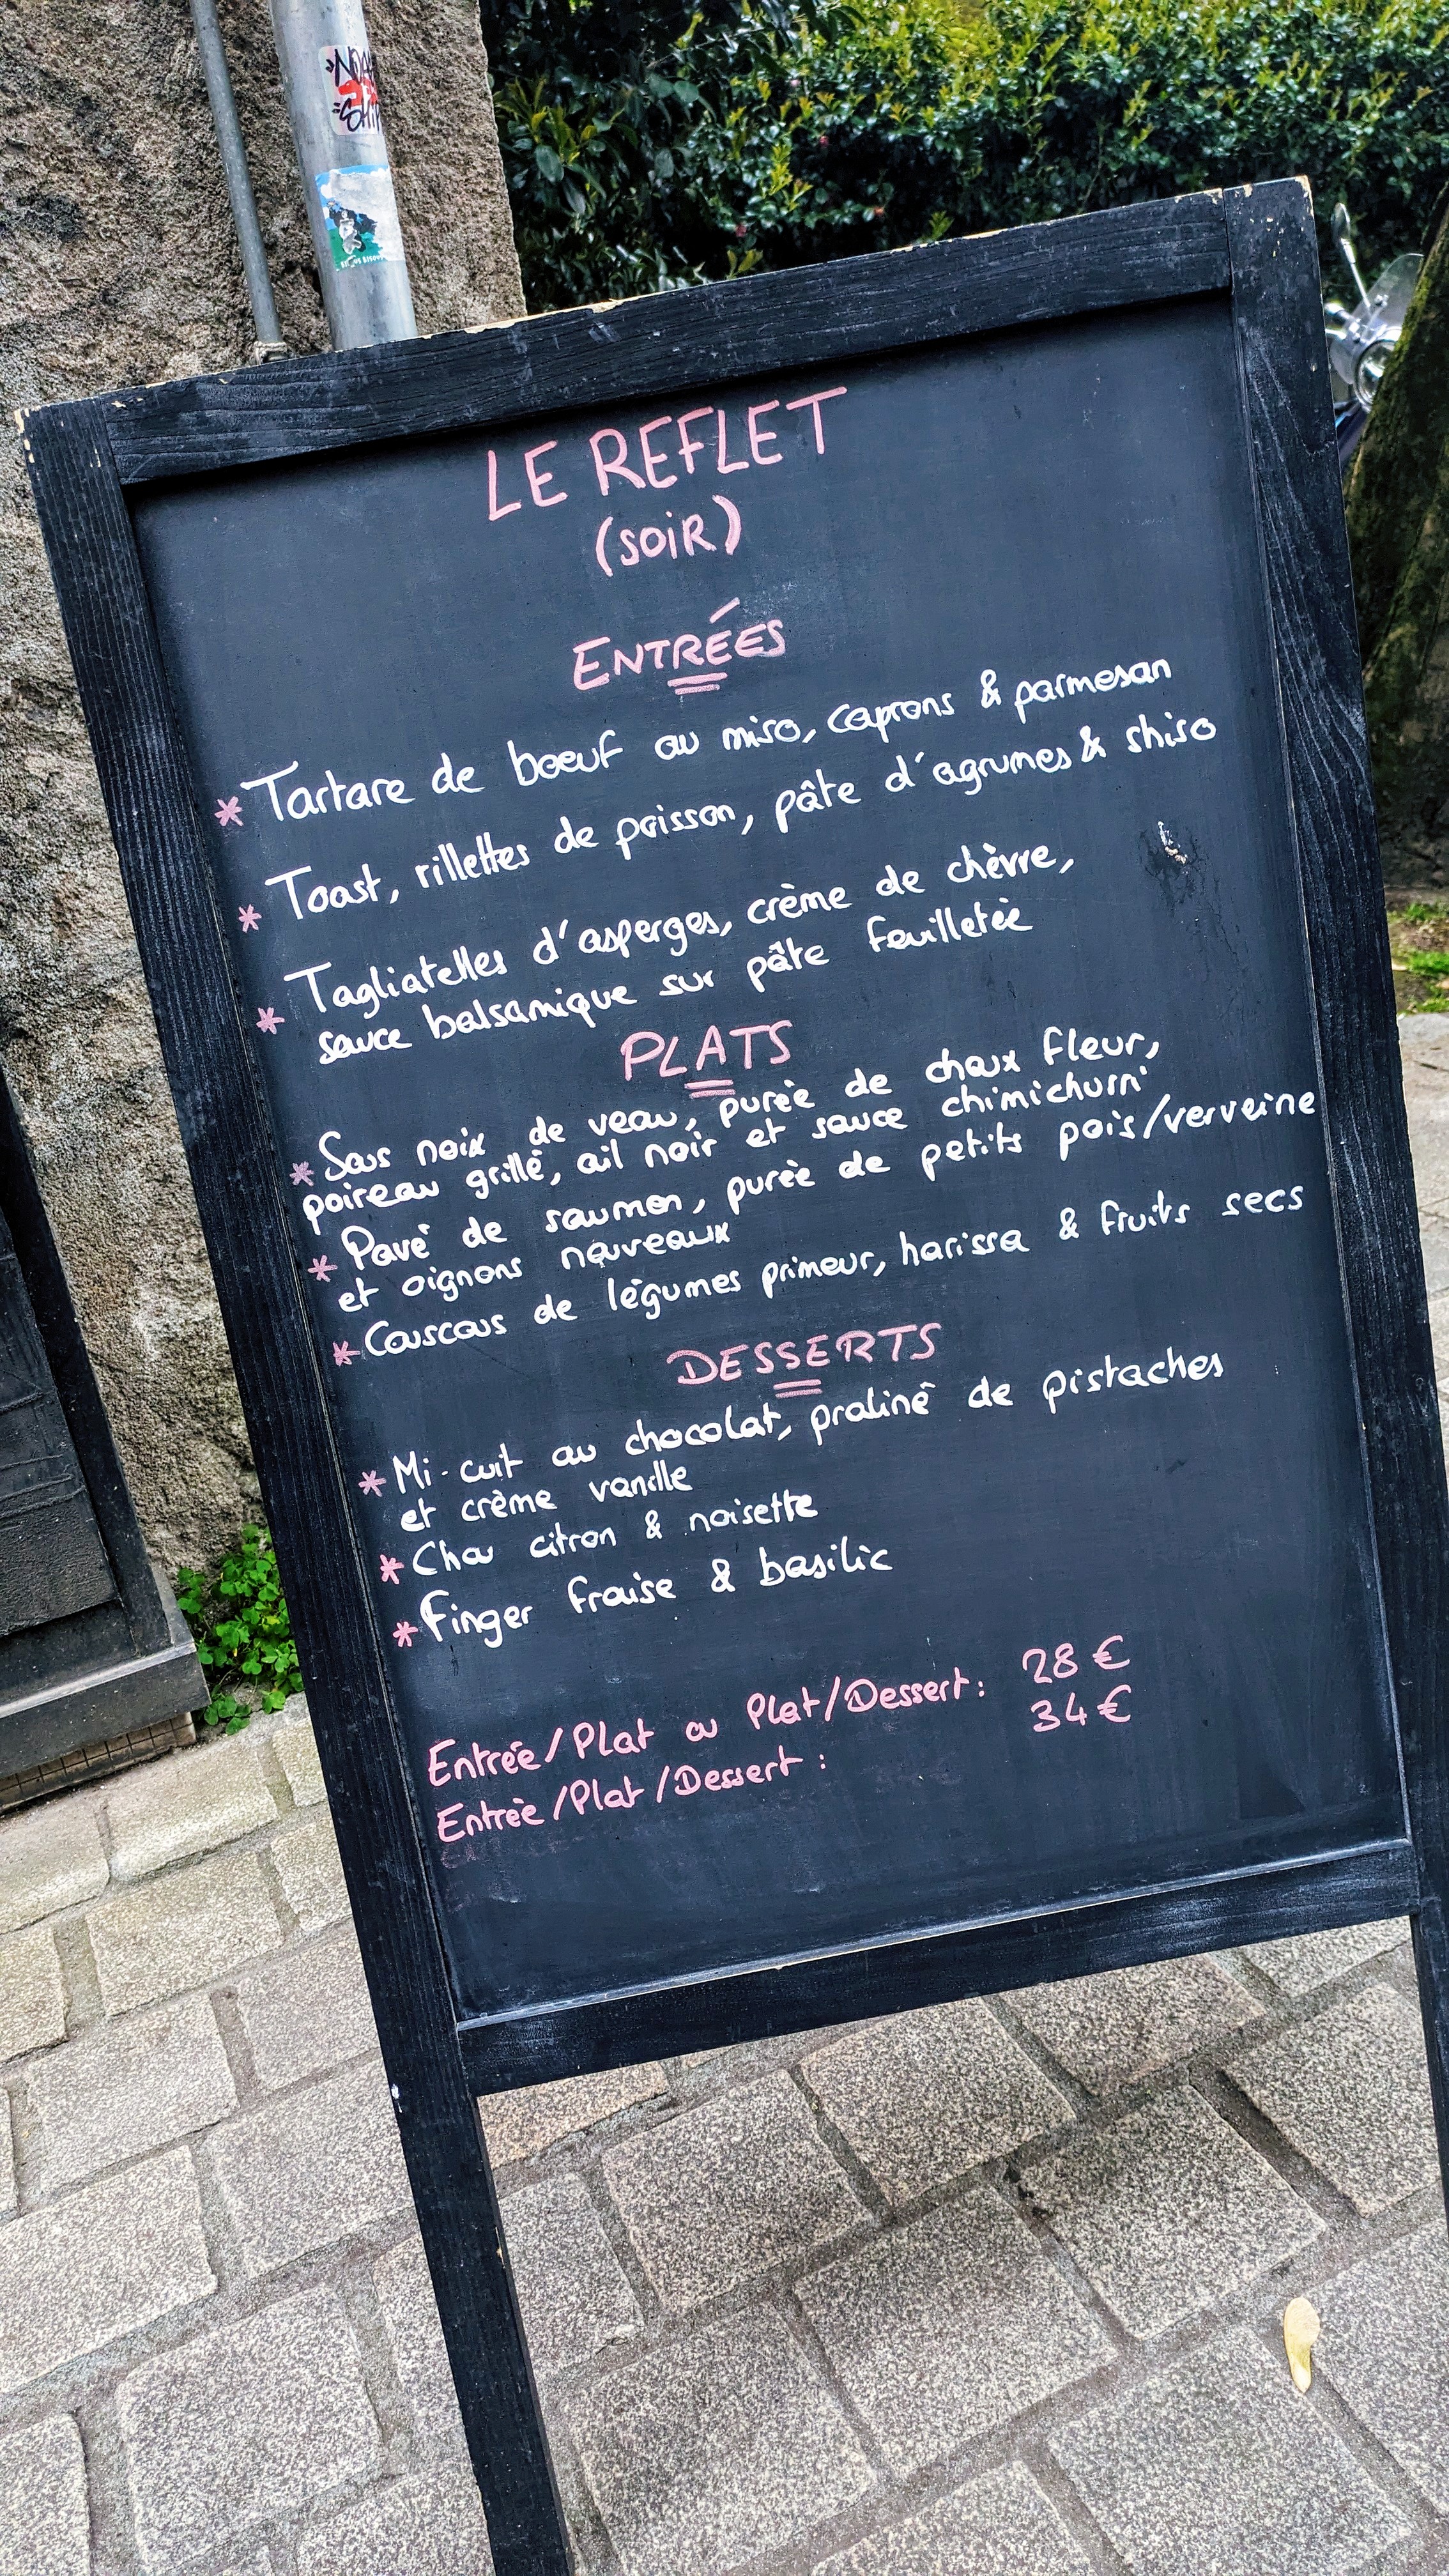 LE REFLET
(SOIR)
ENTRÉES
* Tartare de bœuf au miso, caprons & parmesan
* Toast, rillettes de poisson, pâte d'agrumes & shiso
* Tagliatelles d'asperges, crème de chèvre,
sauce balsamique sur pâte feuilletée
PLATS
* Sous noix de veau, purée de choux fleur,
poireau grillé, ail noir et sauce chimichurri
* Pavé de saumon, purée de petits pois/verveine
et oignons nouveaux
* Couscous de légumes primeur, harissa & fruits secs
DESSERTS
* Mi-cuit au chocolat, praliné de pistaches
et crème vanille
* Chou citron & noisette
* Finger fraise & basilic
Entrée/Plat ou Plat/Dessert: 28 €
Entrée/Plat/Dessert: 34 €